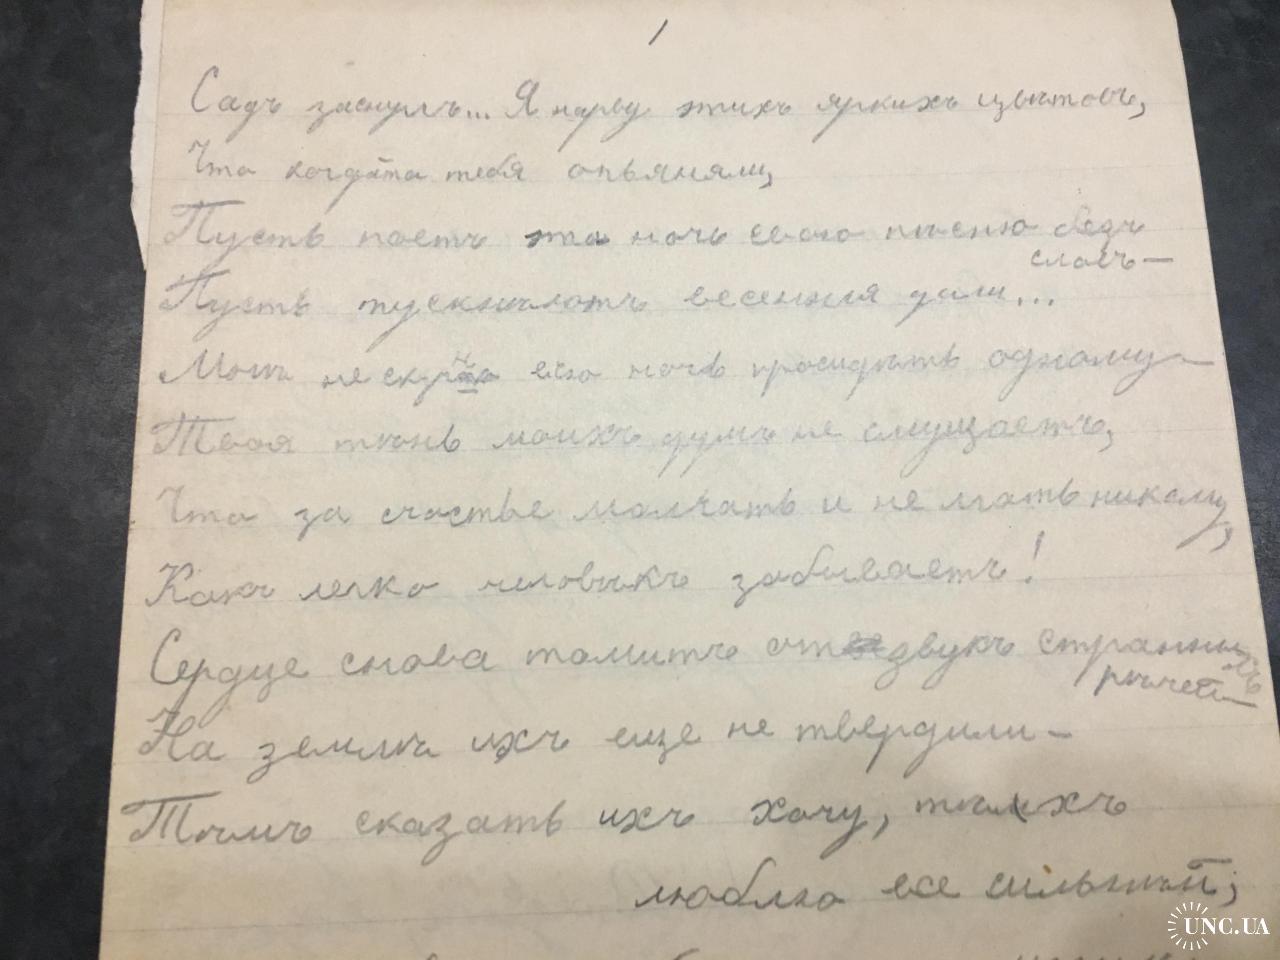 1
Садъ заснулъ... Я нарву этихъ яркихъ цвѣтовъ,
Что когда-то тебя опьяняли,
Пусть поетъ эта ночь свою пѣсню безъ
словъ—
Пусть тускнѣютъ весеннія дали...
Мнѣ не скучно всю ночь просидѣть одному—
Твоя тѣнь моихъ думъ не смущаетъ,
Что за счастье молчать и не лгать никому,
Какъ легко человѣкъ забываетъ!
Сердце снова томитъ отзвукъ странныхъ
рѣчей—
На землѣ ихъ еще не твердили—
Тѣмъ сказать ихъ хочу, тѣхъ
люблю все сильнѣй;
UNC.UA